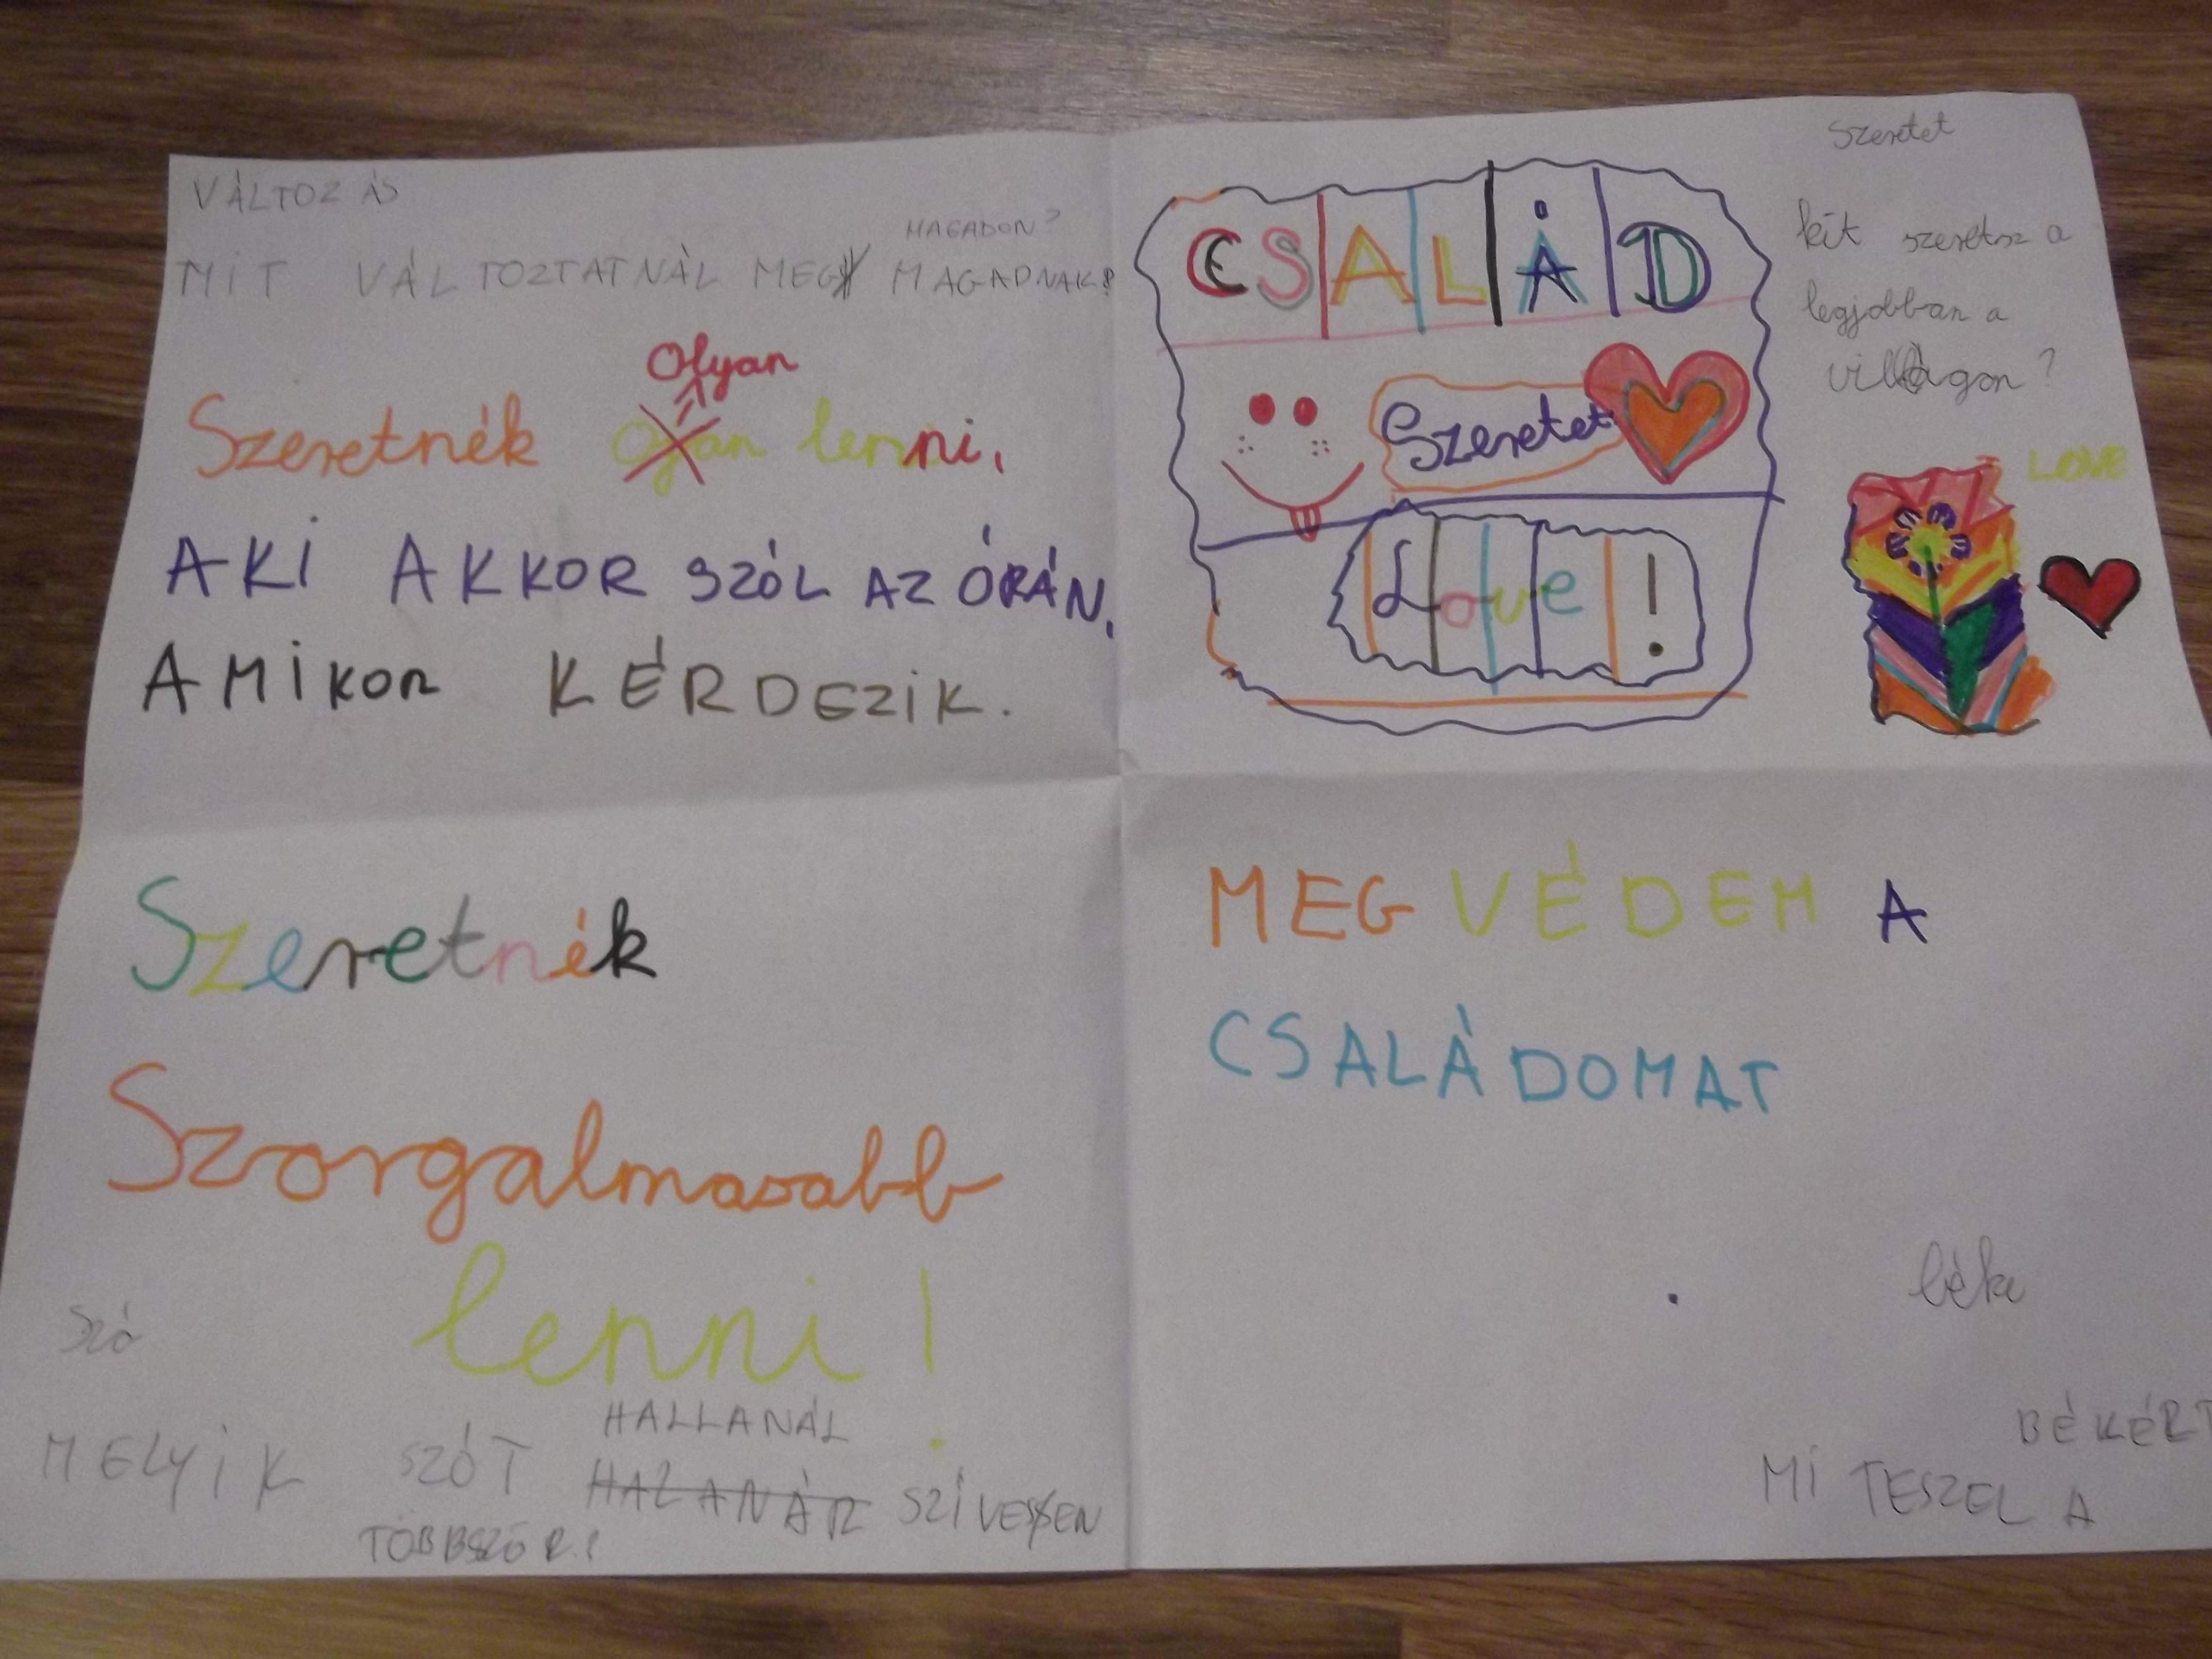 VÁLTOZÁS
MAGADON?
MIT VÁLTOZTATNÁL MEG MAGADNAK?
Olyan
Szeretnék Ojan lenni,
AKI AKKOR SZÓL AZ ÓRÁN,
AMIKOR KÉRDEZIK.
CSALÁD
Szeretet
Love!
Szeretet
kit szeretsz a
legjobban a
világon?
LOVE
Szeretnék
Szorgalmasabb
lenni!
Szó
HALLANÁL
MELYIK SZÓT HALANÁR SZÍVESEN
TÖBBSZÖR?
MEGVÉDEM A
CSALÁDOMAT
béke
BÉKÉRT
MI TESZEL A